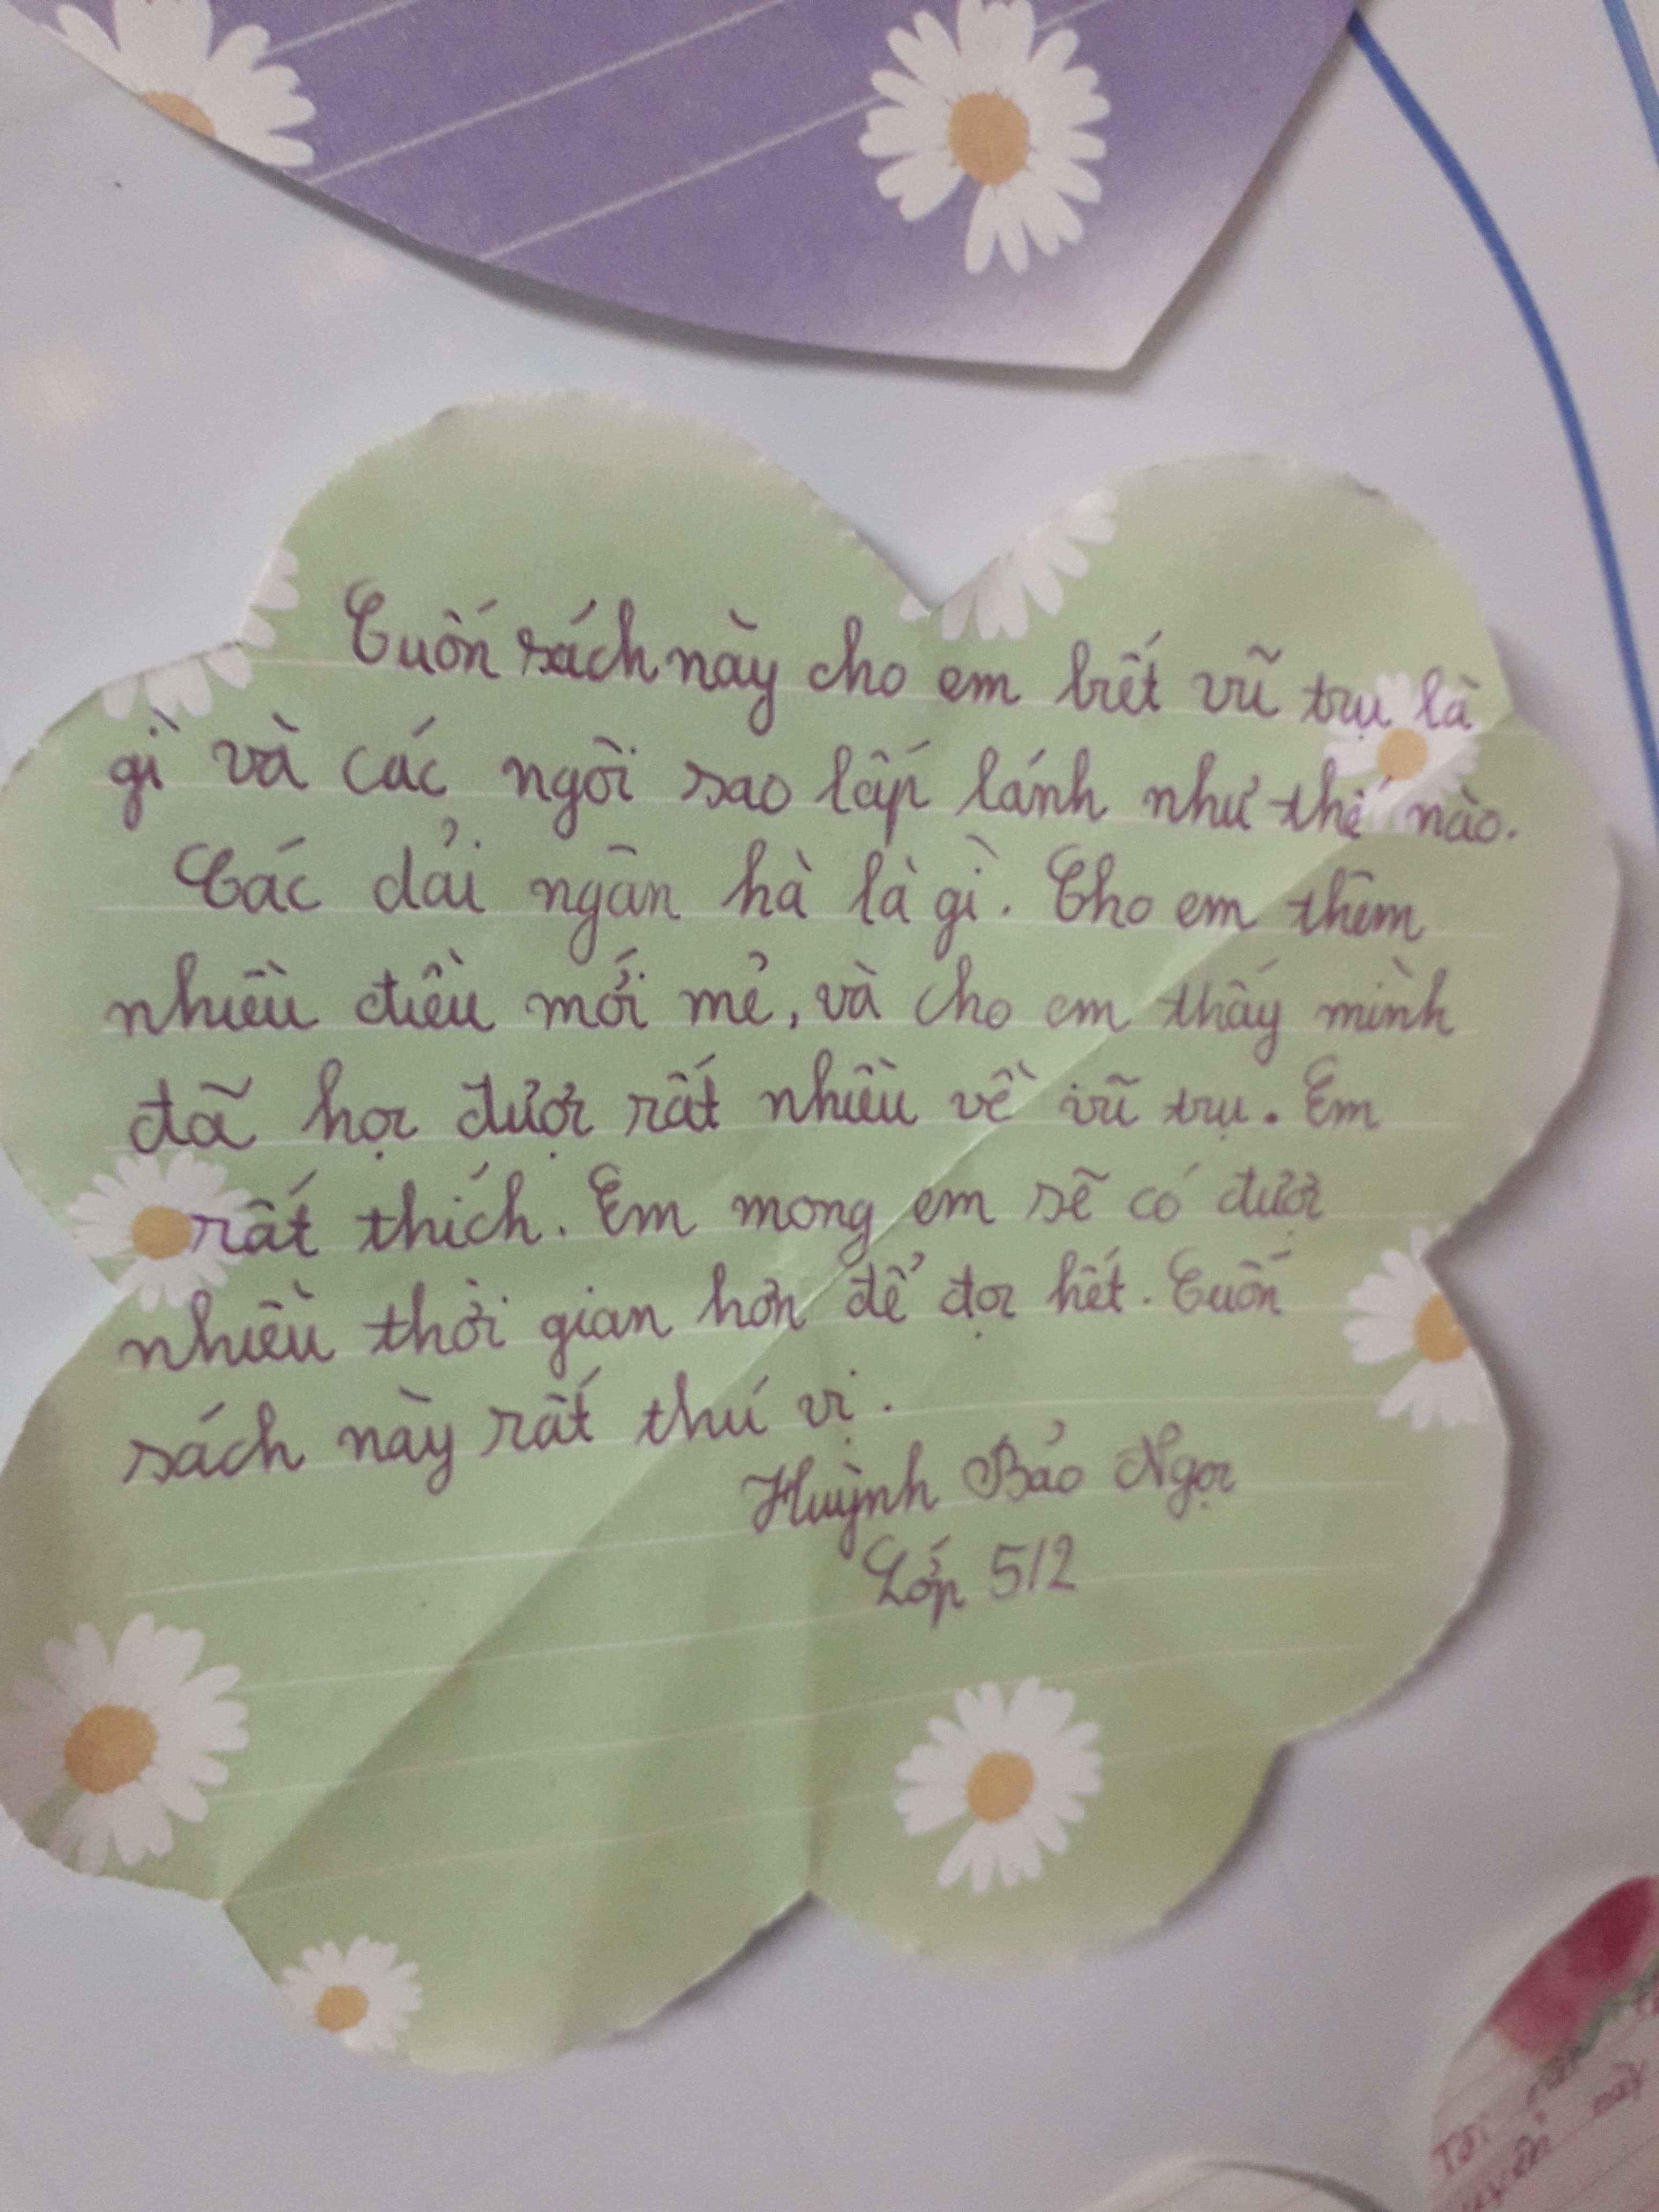 Cuốn sách này cho em biết vũ trụ là
gì và các ngôi sao lấp lánh như thế nào.
Các dải ngân hà là gì. Cho em thêm
nhiều điều mới mẻ, và cho em thấy mình
đã học được rất nhiều về vũ trụ. Em
rất thích. Em mong em sẽ có được
nhiều thời gian hơn để đọc hết. Cuốn
sách này rất thú vị.
Huỳnh Bảo Ngọc
Lớp 5/2